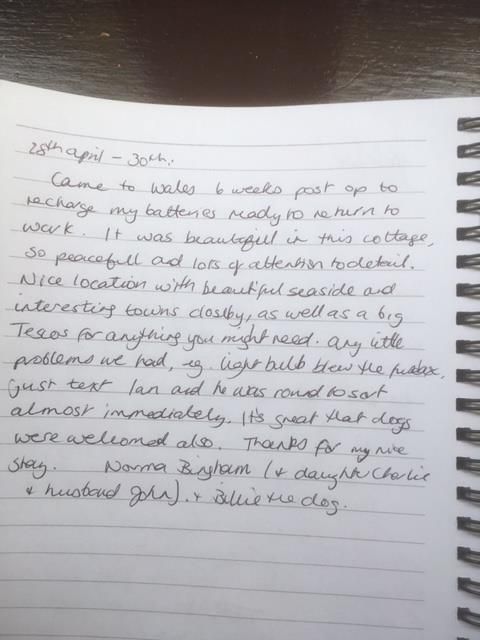 28th april - 30th.
Came to Wales 6 weeks post op to
recharge my batteries ready to return to
work. It was beautifull in this cottage,
so peacefull and lots of attention to detail.
Nice location with beautiful seaside and
interesting towns closby, as well as a big
Tescos for anything you might need. any little
problems we had, eg. light bulb blew the fusebox,
just text Ian and he was round to sort
almost immediately. It's great that dogs
were welcomed also. Thanks for my nice
stay. Norma Bingham (+ daughter Charlie
+ husband John). + Billie the dog.